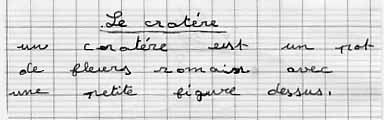 Le cratére
un coratére est un pot
de fleurs romain avec
une petite figure dessus.